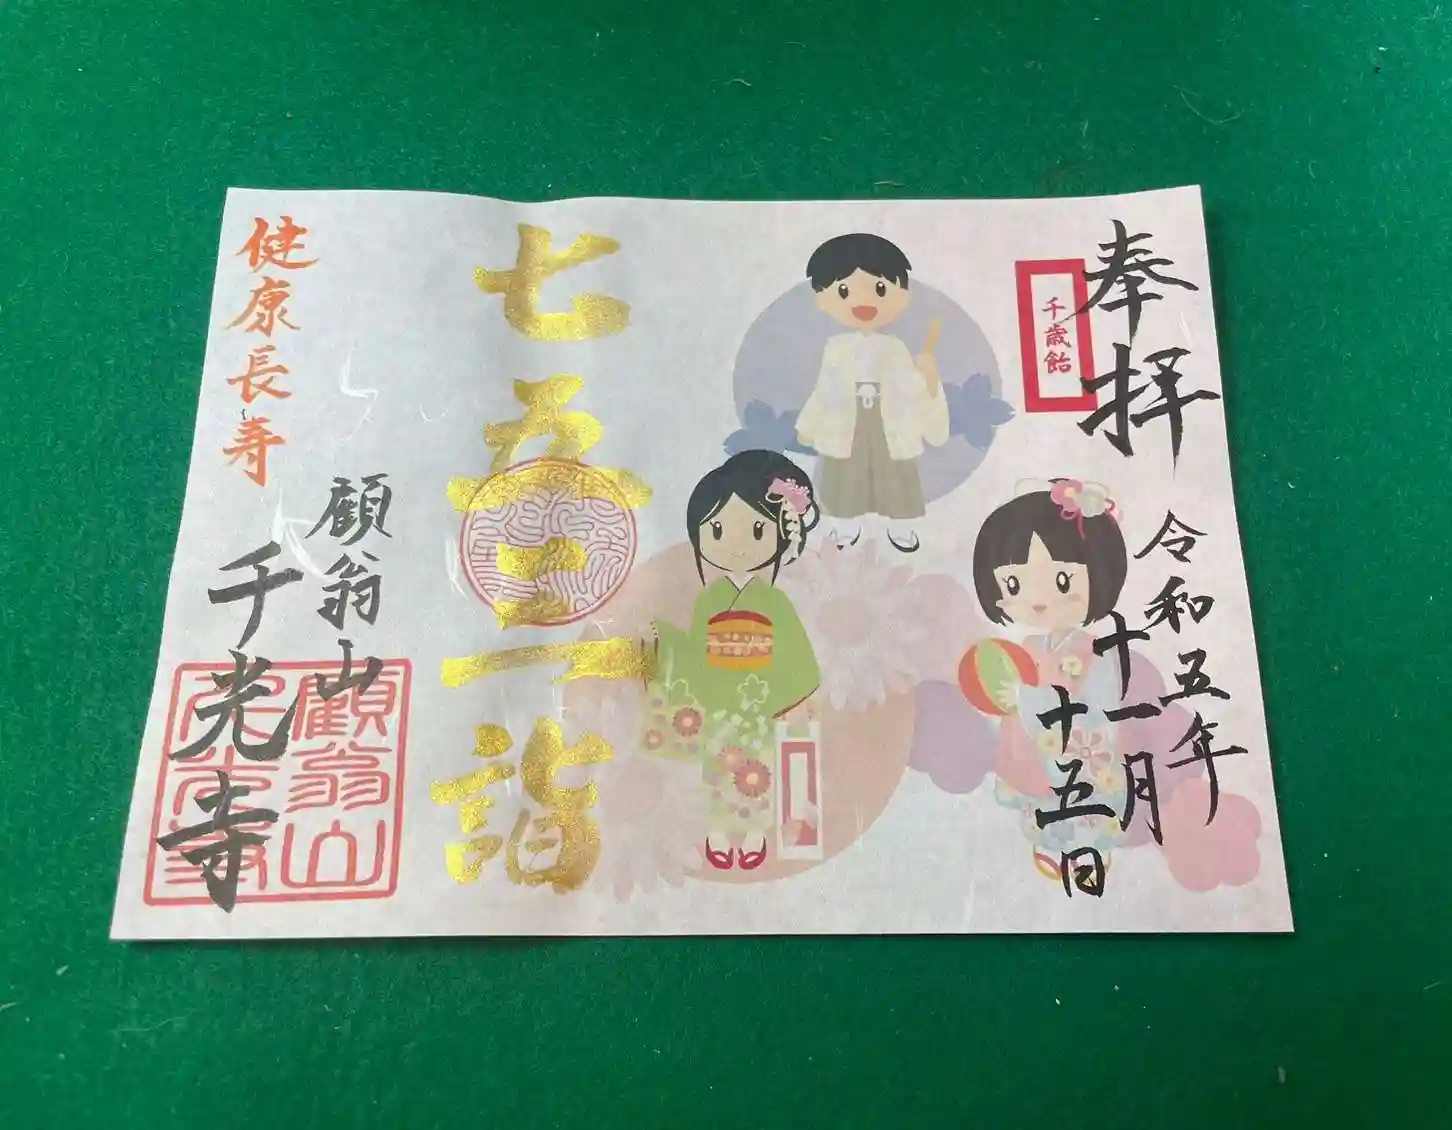 奉拝
千歳飴
令和五年
十一月
十五日
七五三詣
顧翁山
千光寺
健康長寿
顧翁山
千光寺